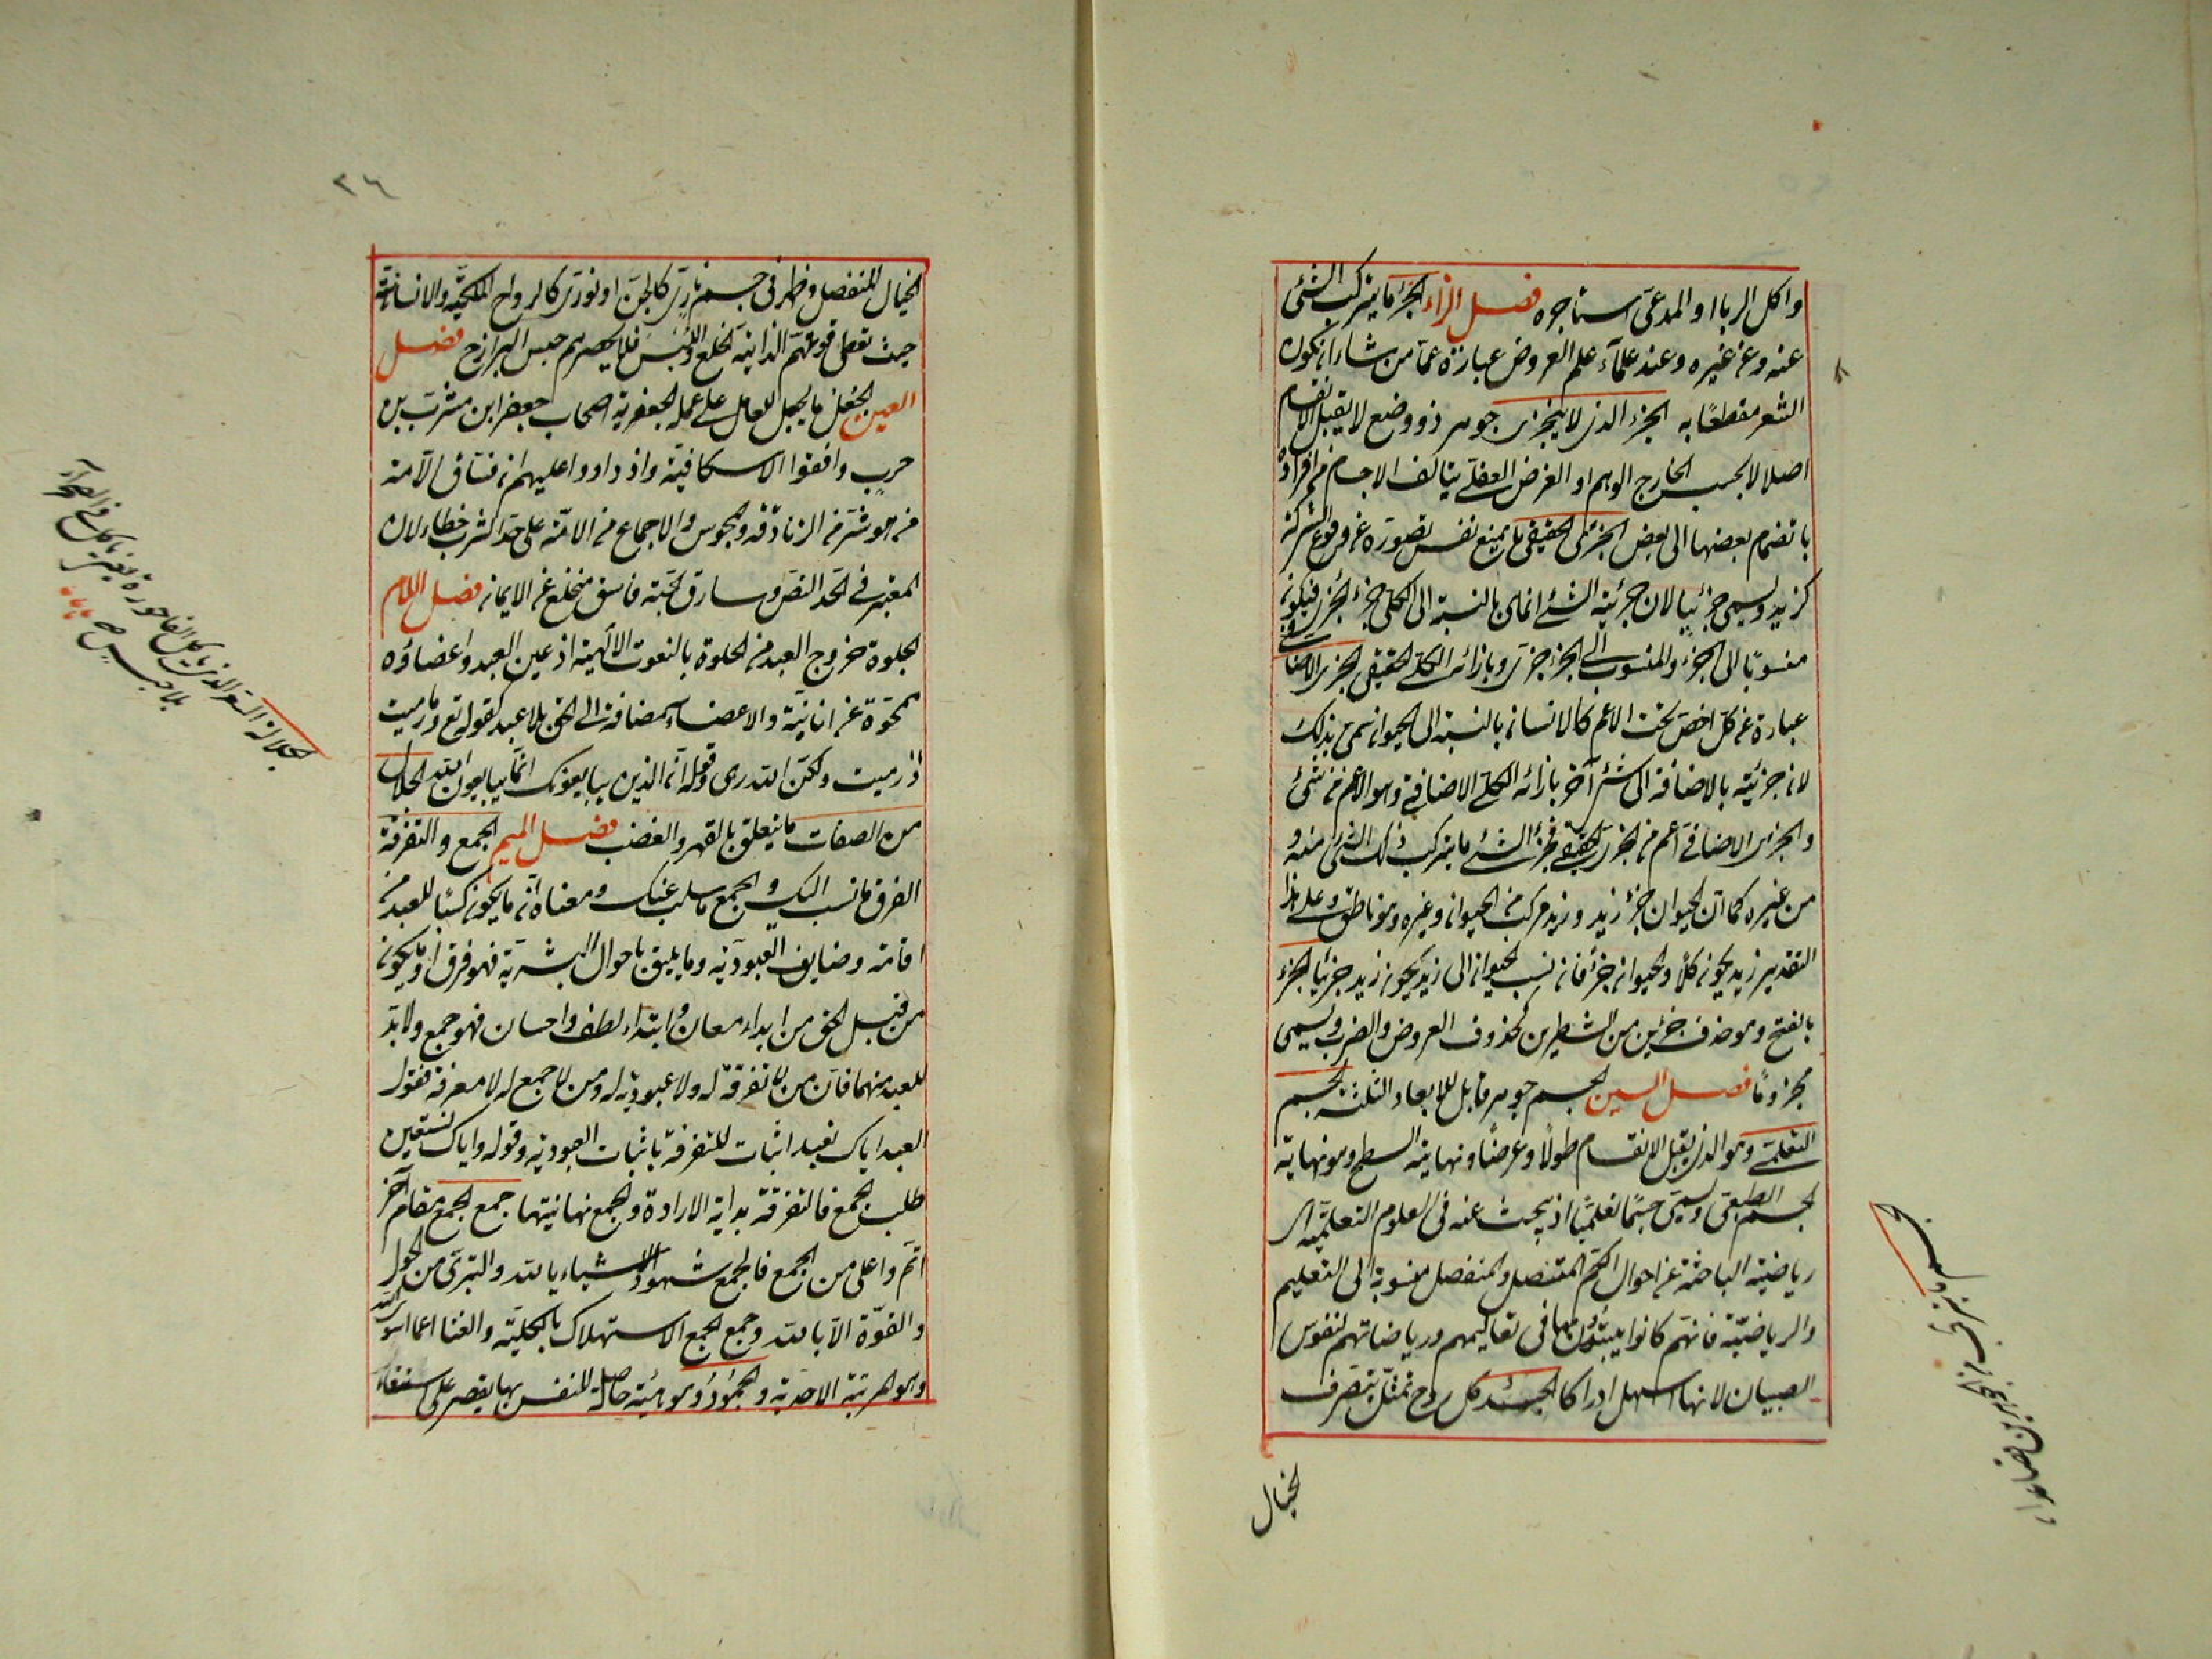 واكل الربا او المدعى استاجره فصل الزاء الجزء ما يتركب الشئ
عنه وعن غيره وعند علماء علم العروض عبارة عما من شانه ان يكون
الشعر مقطعًا به الجزء الذى لا يتجزى جوهر ذو وضع لا يقبل الانقسام
اصلا لا بحسب الخارج الوهم او الفرض العقلى يتالف الاجسام من افراده
بانضمام بعضها الى بعض الجزئى الحقيقى ما يمنع نفس تصوره عن وقوع الشركة
كزيد ويسمى جزئيا لان جزئية الشئ انما هى بالنسبة الى الكلى جزء الجزى فيكون
منسوبًا الى الجزء والمنسوب الى الجزء جزى وبازائه الكلى الحقيقى الجزى الاضافى
عبارة عن كل اخص تحت الاعم كالانسان بالنسبة الى الحيوان سمى بذلك
لان جزئيته بالاضافة الى شئ آخر بازائه الكلى الاضافى وهو الاعم من شئ
والجزى الاضافى اعم من الجزى الحقيقى فجزء الشئ ما يتركب ذلك الشئ منه و
من غيره كما ان الحيوان جزء زيد وزيد مركب من الحيوان وغيره وهو ناطق وعلى هذا
التقدير زيد يكون كلا والحيوان جزء فان نسب الحيوان الى زيد يكون زيد جزئيا الجزء
بالفتح وهو حذف جزئين من الشطرين كحذف العروض والضرب ويسمى
مجزوءًا فصل السين الجسم جوهر قابل للابعاد الثلثة الجسم
التعليمى وهو الذى يقبل الانقسام طولًا وعرضًا ونهايته السطح وهو نهاية
الجسم الطبيعى ويسمى جسمًا تعليميًا اذ يبحث عنه فى العلوم التعليمية اى
رياضية الباحثة عن احوال الكم المتصل والمنفصل منسوبة الى التعليم
والرياضية فانهم كانوا يبتدؤن بها فى تعاليمهم ورياضاتهم لنفوس
الصبيان لانها اسهل ادراكا الجسد كل روح تمثل بتصرف
الخيال
٢٦
الخيال المنفصل وظهر فى جسم نارى كالجن او نورى كالارواح الملكية والانسانية
حيث تعطى قوتهم الذاتية الخلع واللبس فلا يحصرهم حبس البرازخ فصل
العين الجعل ما يجعل للعامل على عمله الجعفرية اصحاب جعفر ابن مشرب بن
حرب وافقوا الاسكافية وازدادوا عليهم ان فساق الامة
من هو شر من الزنادقة والمجوس والاجماع من الامة على حد الشرب خطاء لان
المعتبر فى الحد النص وسارق الحبة فاسق منخلع عن الايمان فصل اللام
الجلوة خروج العبد من الخلوة بالنعوت الالهية اذ عين العبد واعضاؤه
ممحوة عن انانية والاعضاء مضافة الى الحق بلا عبد كقوله تع وما رميت
اذ رميت ولكن الله رمى وقوله ان الذين يبايعونك انما يبايعون الله الجلال
من الصفات ما يتعلق بالقهر والغضب فصل الميم الجمع والتفرقة
الفرق ما نسب اليك والجمع ما سلب عنك ومعناه ان ما يكون كسبًا للعبد من
اقامة وضايف العبودية وما يليق باحوال البشرية فهو فرق وما يكون
من قبل الحق من ابداء معان وابتداء لطف واحسان فهو جمع ولا بد
للعبد منهما فان من لا تفرقة له ولا عبودية له ومن لا جمع له لا معرفة فقول
العبد اياك نعبد اثبات للتفرقة باثبات العبودية وقوله واياك نستعين
طلب الجمع فالتفرقة بداية الارادة والجمع نهايتها جمع الجمع مقام آخر
اتم واعلى من الجمع فالجمع شهود الاشياء بالله والتبرى من الحول
والقوة الا بالله وجمع الجمع الاستهلاك بالكلية والفنا عما سوى الله
وهو المرتبة الاحدية والجمود وهو هيئة حاصلة للنفس بها يقتصر على استيفاء